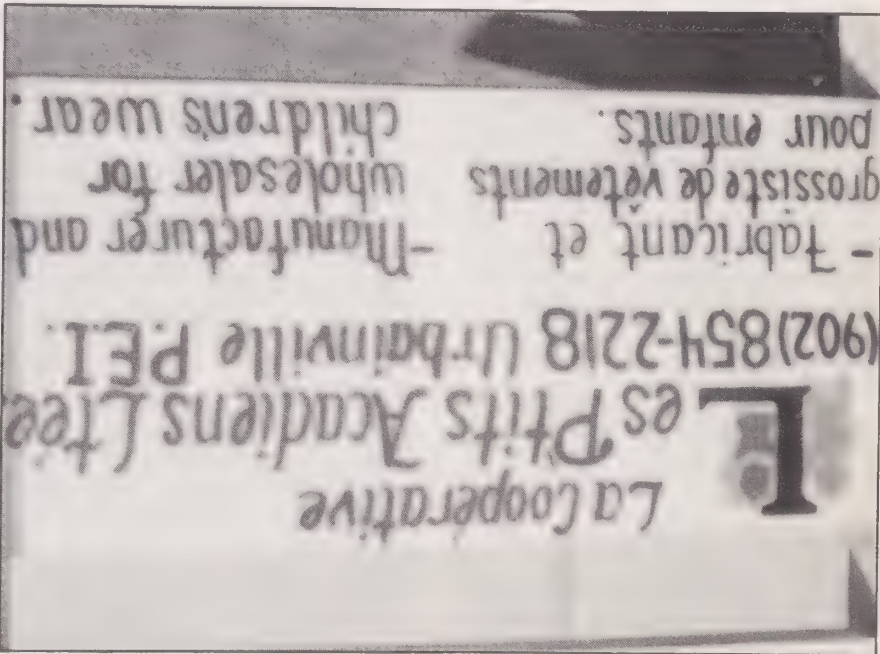 La Coopérative
Les P'tits Acadiens Ltée
(902) 854-2218 Urbainville P.E.I.
- Fabricant et
grossiste de vêtements
pour enfants.
- Manufacturer and
wholesaler for
children's wear.